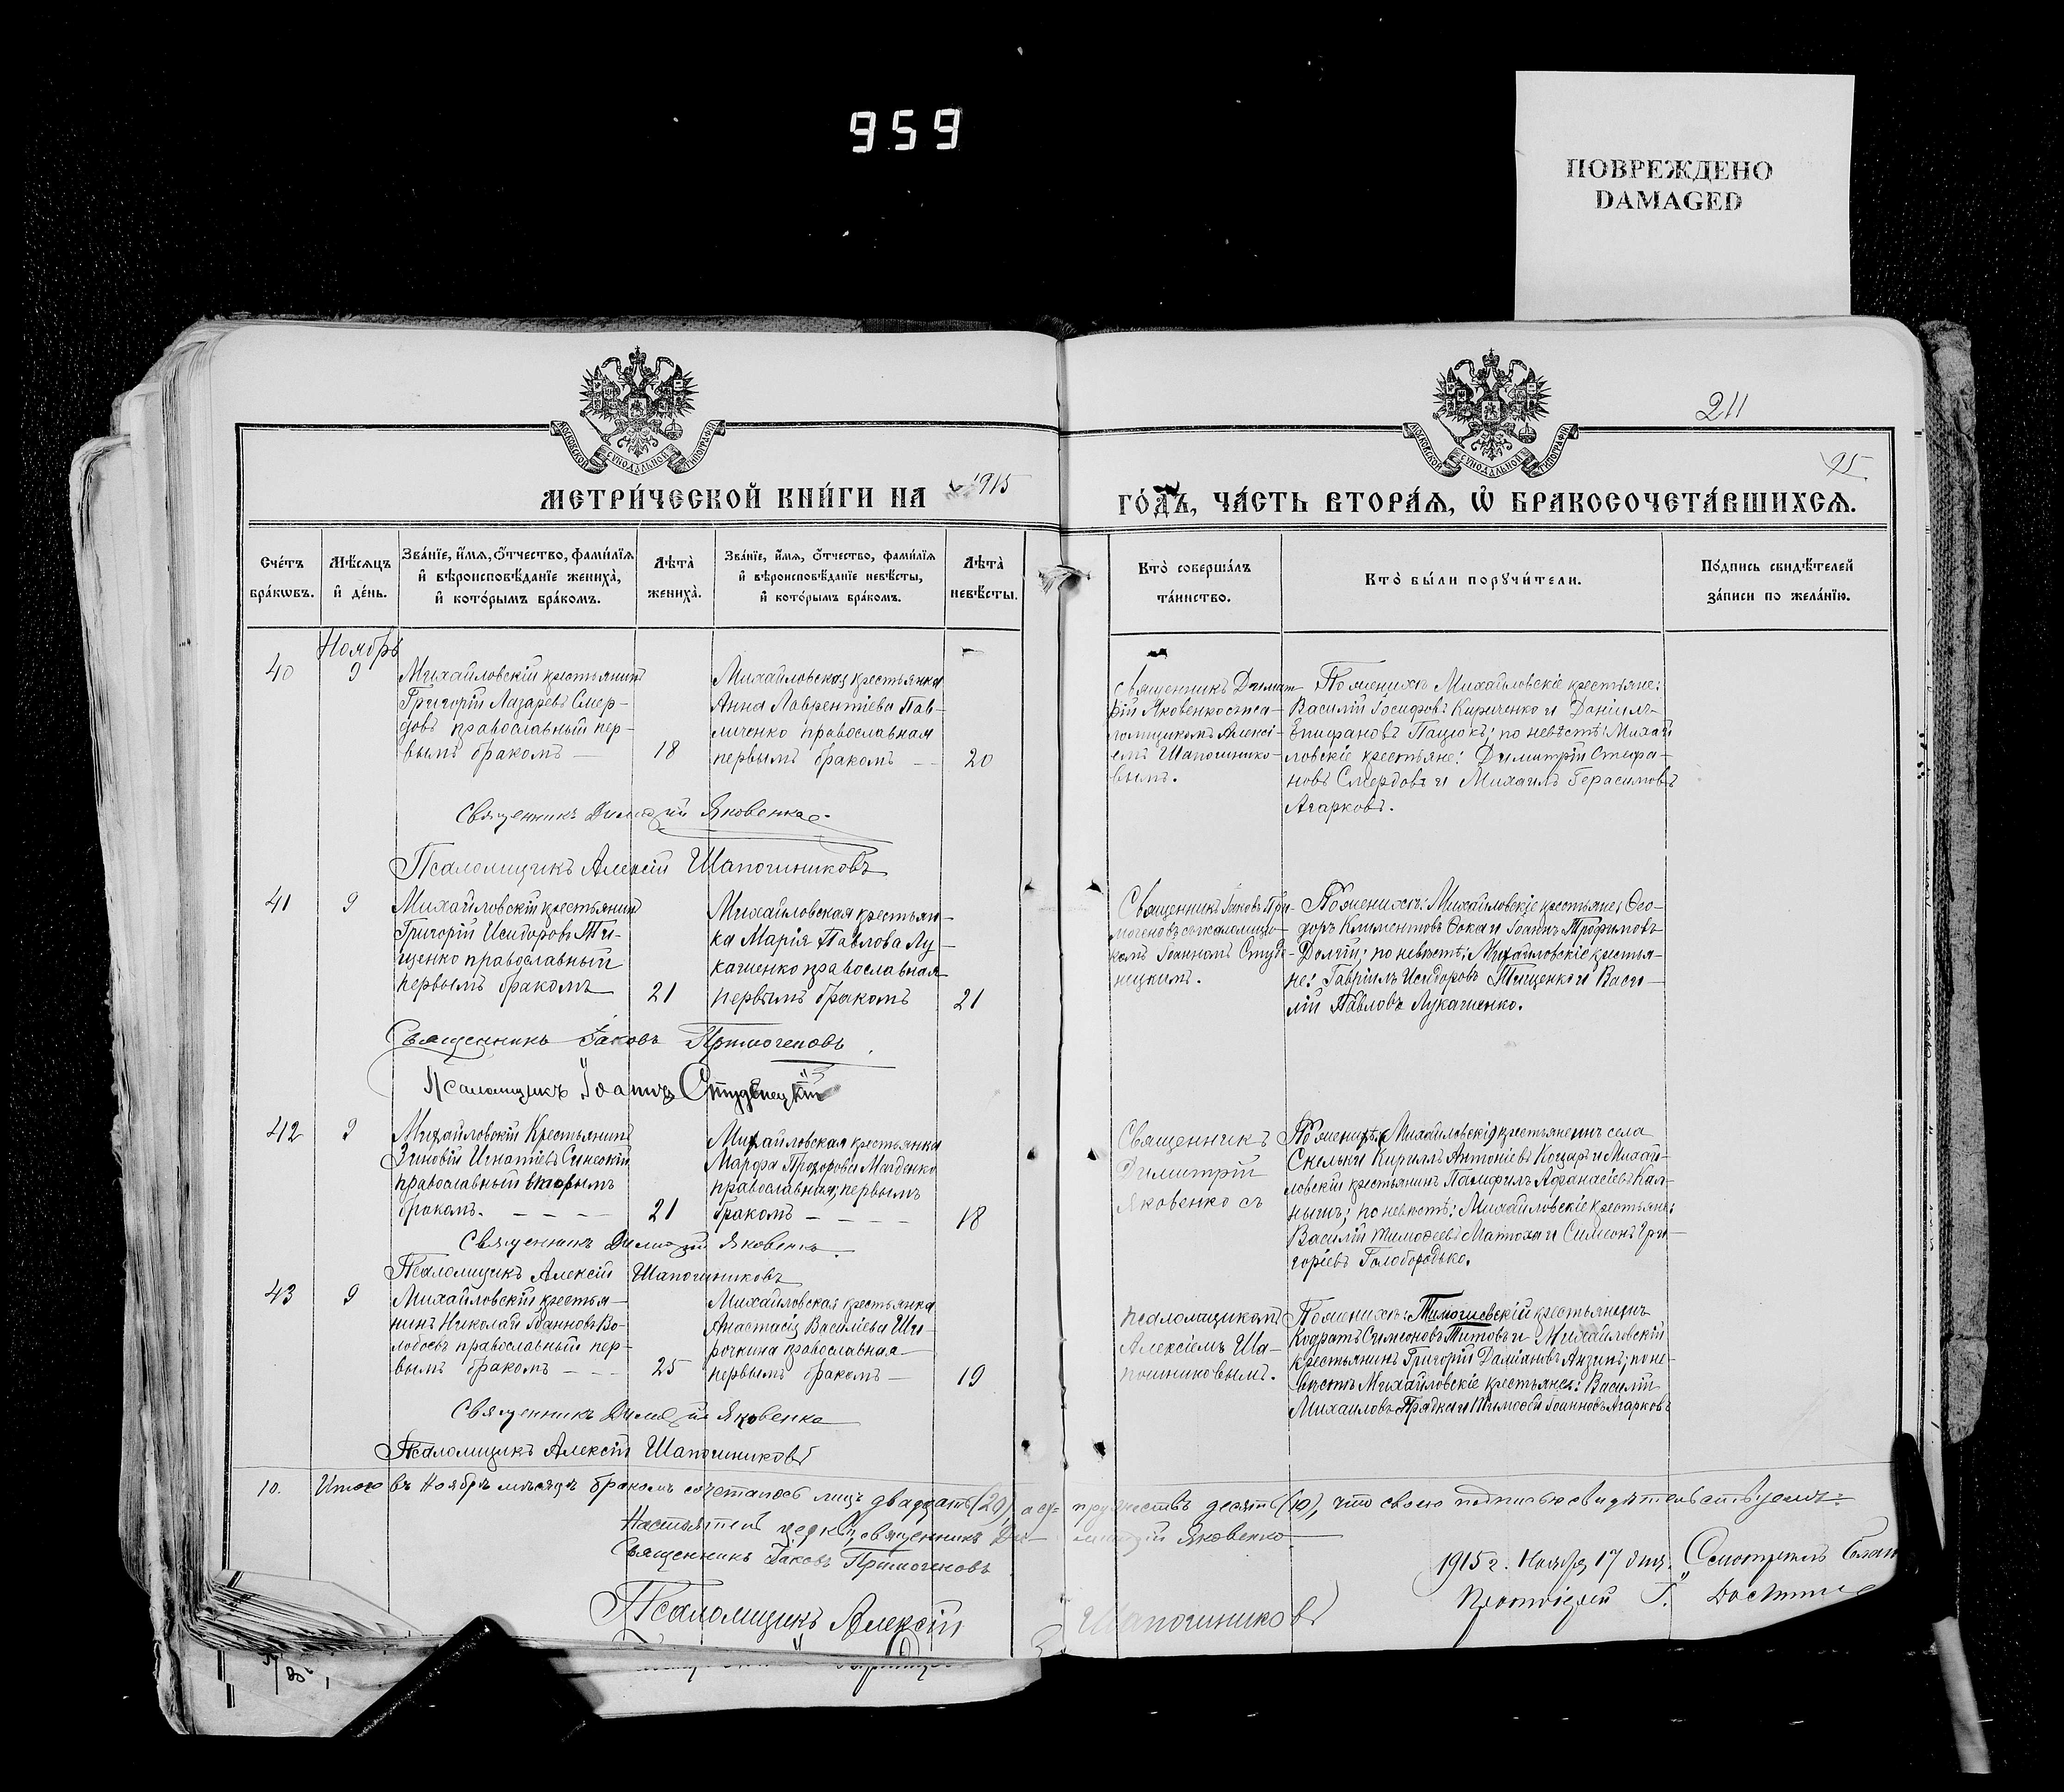 959
ПОВРЕЖДЕНО
DAMAGED
211
95
МОСКОВСКОЙ СѴНОДАЛЬНОЙ ТИПОГРАФІИ
МОСКОВСКОЙ СѴНОДАЛЬНОЙ ТИПОГРАФІИ
МЕТРИ́ЧЕСКОЙ КНИ́ГИ НА 1915
ГО́ДЪ, ЧА́СТЬ ВТОРА́Ѧ, Ѽ БРАКОСОЧЕТА́ВШИХСѦ.
Сче́тъ бра́кѡвъ.
Мѣ́сяцъ и де́нь.
Зва́нїе, и́мя, о́тчество, фами́лїя и вѣроисповѣ́данїе жениха̀, и кото́рымъ бра́комъ.
Лѣ́та жениха̀.
Зва́нїе, и́мя, о́тчество, фами́лїя и вѣроисповѣ́данїе невѣ́сты, и кото́рымъ бра́комъ.
Лѣ́та невѣ́сты.
Кто̀ соверша́лъ та́инство.
Кто̀ бы́ли порꙋчи́тели.
По́дпись свидѣ́телей за́писи по жела́нїю.
Ноябрь
40
9
Михайловскій крестьянинъ
Григорій Лазаревъ Смер-
довъ православный пер-
вымъ бракомъ —
18
Михайловская крестьянка
Анна Лаврентіева Пав-
личенко православная
первымъ бракомъ — —
20
Священникъ Димит-
рій Яковенко съ пса-
ломщикомъ Алексі-
емъ Шапошнико-
вымъ.
По женихѣ Михайловскіе крестьяне:
Василій Іосифовъ Кириченко и Даніилъ
Епифановъ Пацюкъ; по невѣстѣ: Михай
ловскіе крестьяне: Димитрій Стефа-
новъ Смердовъ и Михаилъ Герасимовъ
Агарковъ.
Священникъ Димитрій Яковенко.
Псаломщикъ Алексій Шапошниковъ
41
9
Михайловскій крестьянинъ
Григорій Исидоровъ Ти-
щенко православный
первымъ бракомъ
21
Михайловская крестьян-
ка Марія Павлова Лу-
кашенко православная
первымъ бракомъ
21
Священникъ Іаковъ При-
могеновъ съ псаломщи-
комъ Іоанномъ Студе-
нецкимъ.
По женихѣ: Михайловскіе крестьяне: Ѳео-
доръ Климентовъ Ѳока и Іоаннъ Трофимовъ
Долгій; по невѣстѣ: Михайловскіе крестья-
не: Гавріилъ Исидоровъ Тищенко и Васи-
лій Павловъ Лукашенко.
Священникъ Іаковъ Примогеновъ
Псаломщикъ Іоаннъ Студенецкій
42
9
Михайловскій Крестьянинъ
Зиновій Игнатіевъ Синегкій
православный вторымъ
бракомъ. — — — —
21
Михайловская крестьянка
Марфа Прохорова Магденко
православная, первымъ
бракомъ — — —
18
Священникъ
Димитрій
Яковенко съ
По женихѣ: Михайловскіе крестьянинъ села
Скельки Кириллъ Антоніевъ Коцарь и Михай-
ловскій крестьянинъ Памфилъ Афанасіевъ Кал-
нышъ; по невѣстѣ: Михайловскіе крестьяне:
Василій Тимоѳеевъ Матоха и Симеонъ Гри-
горіевъ Голобородько.
Священникъ Димитрій Яковенко.
Псаломщикъ Алексій Шапошниковъ
43
9
Михайловскій крестья-
нинъ Николай Іоанновъ Во-
лобоевъ православный пер-
вымъ бракомъ — — —
25
Михайловская крестьянка
Анастасія Василіева Ши-
рочкина православная
первымъ бракомъ —
19
псаломщикомъ
Алексіемъ Ша-
пошниковымъ.
По женихѣ: Тимошевскій крестьянинъ
Кодратъ Симеоновъ Титовъ и Михайловскій
крестьянинъ Григорій Даміановъ Анзинъ; по не-
вѣстѣ Михайловскіе крестьяне: Василій
Михаиловъ Прядка и Тимоѳей Іоанновъ Агарковъ
Священникъ Димитрій Яковенко
Псаломщикъ Алексій Шапошниковъ
10. Итого въ Ноябрѣ мѣсяцѣ бракомъ сочеталось лицъ двадцать (20), а су-пружествъ десять (10), что своею подписью свидѣтельствуемъ:
Настоятель церкви, священникъ Ди-митрій Яковенко
Священникъ Іаковъ Примогеновъ
Псаломщикъ Алексій Шапошниковъ
1915 г. Ноября 17 дня. Смотрѣлъ
Протоіерей Г.